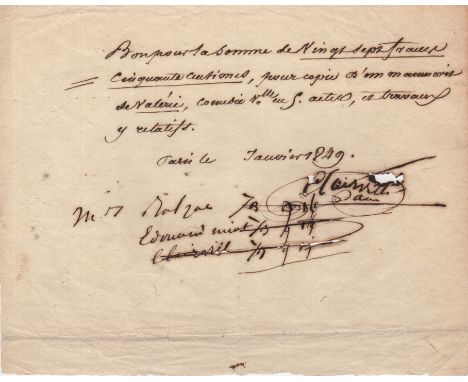 Bon pour la somme de Vingt sept francs
= Cinquante centimes, pour copie d'un manuscrit
de Valérie, comédie Vlle en 5. actes, et travaux
y relatifs.
Paris le Janvier 1849.
Clairville
Mrs Balzac 1/3
Edouard 1/3
Clairville 1/3